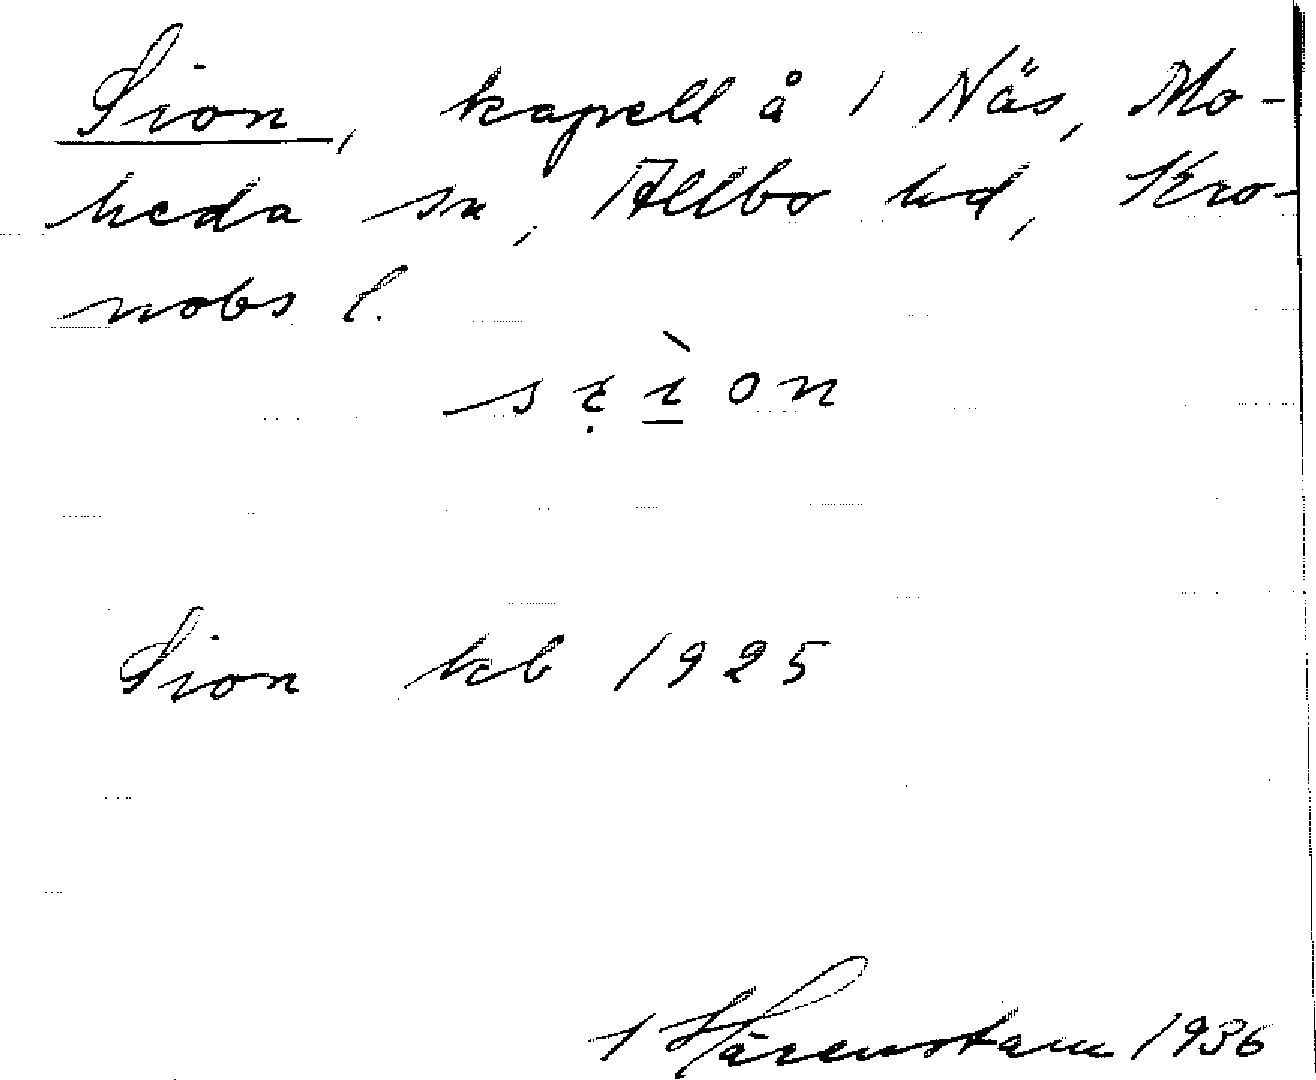 Sion, kapell å 1 Näs, Mo-
heda sn, Allbo hd, Kro-
nobs l.
Sion kb 1925
Härenstam 1936